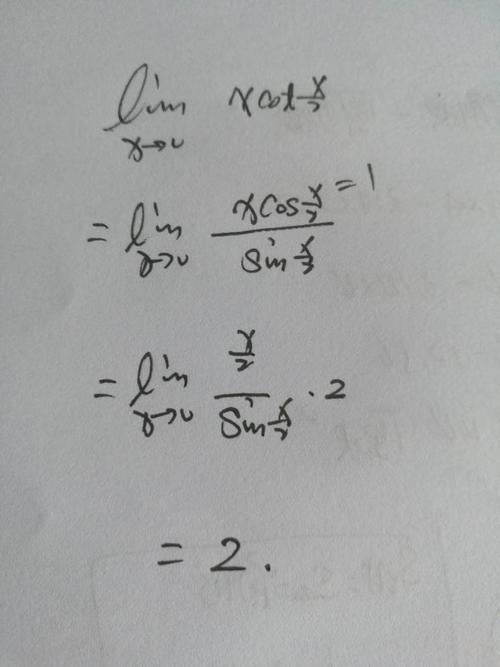 lim x→0 x cot x/2
= lim x→0 x cos x/2 = 1 / sin x/2
= lim x→0 x/2 / sin x/2 · 2
= 2.